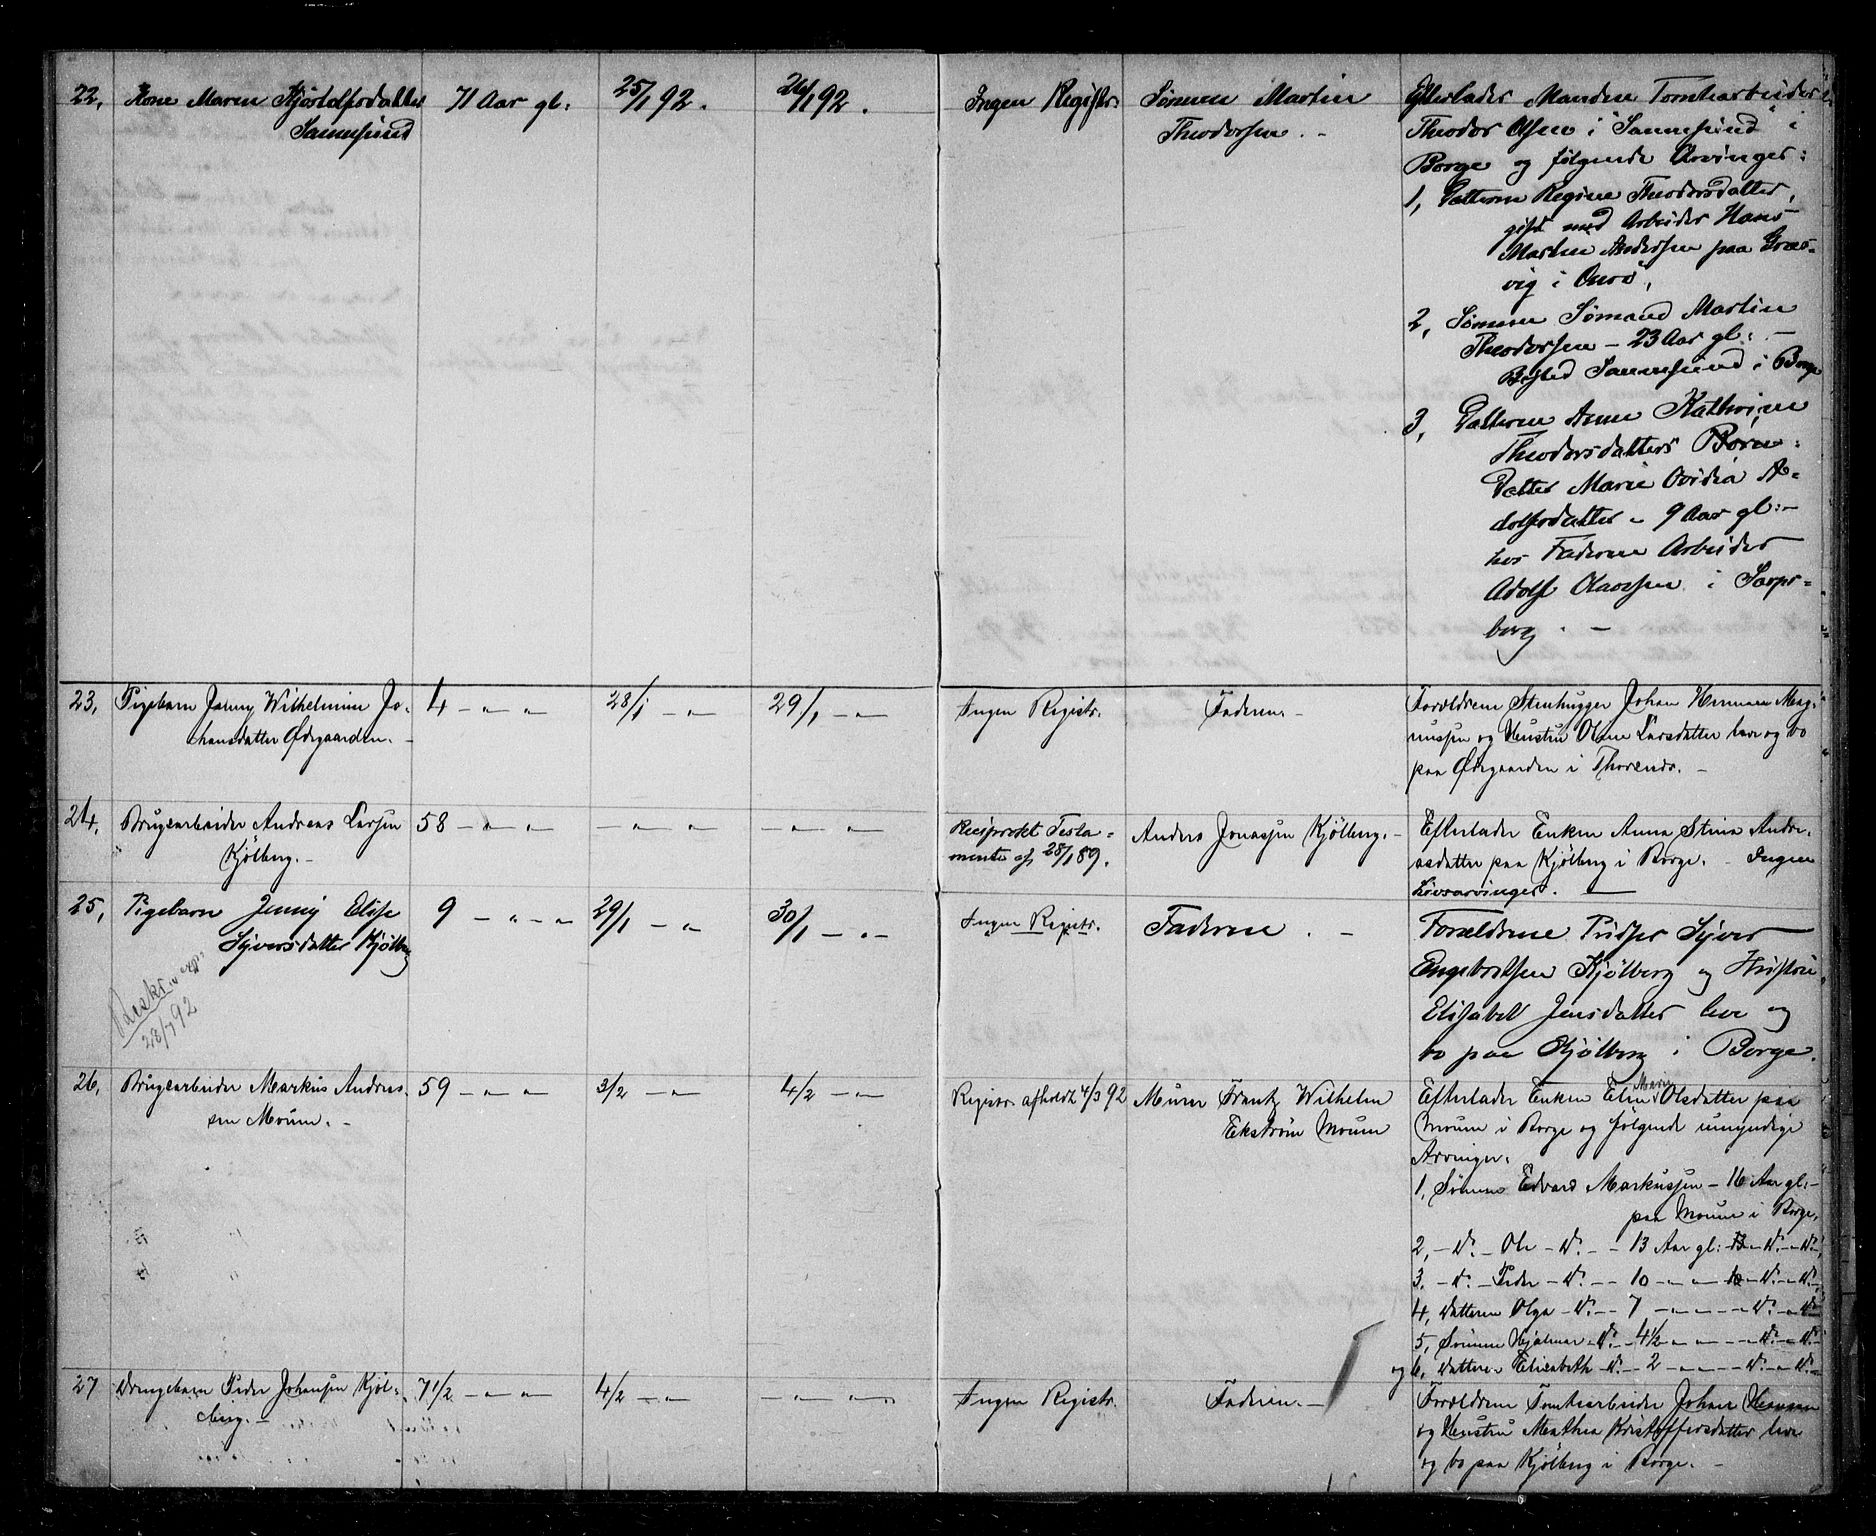 22, Kone Maren Kjøstolfsdatter
Sannesund
71 Aar gl:
25/1 92.
26/1 92.
Ingen Registr.
Sønnen Martin
Theodorsen. -
Efterlader Manden Tomtearbeider
Theodor Olsen i "Sannesund" i
Borge og følgende Arvinger:
1, Datteren Regine Theodorsdatter,
gift med Arbeider Hans
Martin Andersen paa Græs-
vig i Onsø,
2, Sønnen Sømand Martin
Theodorsen - 23 Aar gl: -
Bosted Sannesund i Borge
3, Datteren Anne Kathrine
Theodorsdatters Børn:
Datter Marie Ovidia A-
dolfsdatter - 9 Aar gl: -
hos Faderen Arbeider
Adolf Olavesen i Sarps-
borg. -
23, Pigebarn Jenny Wilhelmine Jo-
hansdatter Ødegaarden. -
4 - " - "
28/1 - "
29/1 - "
Ingen Registr.
Faderen. -
Forældrene Stenhugger Johan Herman Mag-
nussen og Hustru Oline Larsdatter leve og bo
paa Ødegaarden i Thorsnæs. -
24, Brugsarbeider Andreas Larsen
Kjølberg. -
58 - " - "
- " - "
- " - "
Reciprokt Testa-
mente af 28/1 89.
Anders Jonassen Kjølberg. -
Efterlader Enken Anna Stina Andre-
asdatter paa Kjølberg i Borge. - Ingen
Livsarvinger. -
25, Pigebarn Jenny Elise
Syversdatter Kjølberg
9 - " - "
29/1 - "
30/1 - " -
Ingen Registr.
Faderen. -
Forældrene Pudser Syver
Engebretsen Kjølberg og Hustru
Elisabet Jensdatter leve og
bo paa Kjølberg i Borge.
28/7 92
26, Brugsarbeider Markus Andreas-
sen Moum. -
59 - " - "
3/2 - "
4/2 - "
Registr. afholdt 4/3 92
Murer Frantz Wilhelm
Ekstrøm Moum
Marie
Efterlader Enken Elin Olsdatter paa
Moum i Borge og følgende umyndige
Arvinger:
1, Sønnen Edvard Markussen - 16 Aar gl: -
paa Moum i Borge,
2, - do - Ole - do - - 13 Aar gl: 13 - do - do -,
3. - do - Peder - do - - 10 - " - 10 - do - do -,
4, Datteren Olga - do - - 7 - " - " - do - do
5, Sønnen Hjalmar - do - 4½ - " - " - do - do
og 6, Datteren Elisabeth - do - 2 - " - " - do - do
27 Drengebarn Peder Johansen Kjøl-
berg. -
7½ - " - "
4/2 - "
- " - "
Ingen Registr.
Faderen. -
Forældrene Tomtearbeider Johan Hansen
og Hustru Mathea Kristoffersdatter leve
og bo paa Kjølberg i Borge. -